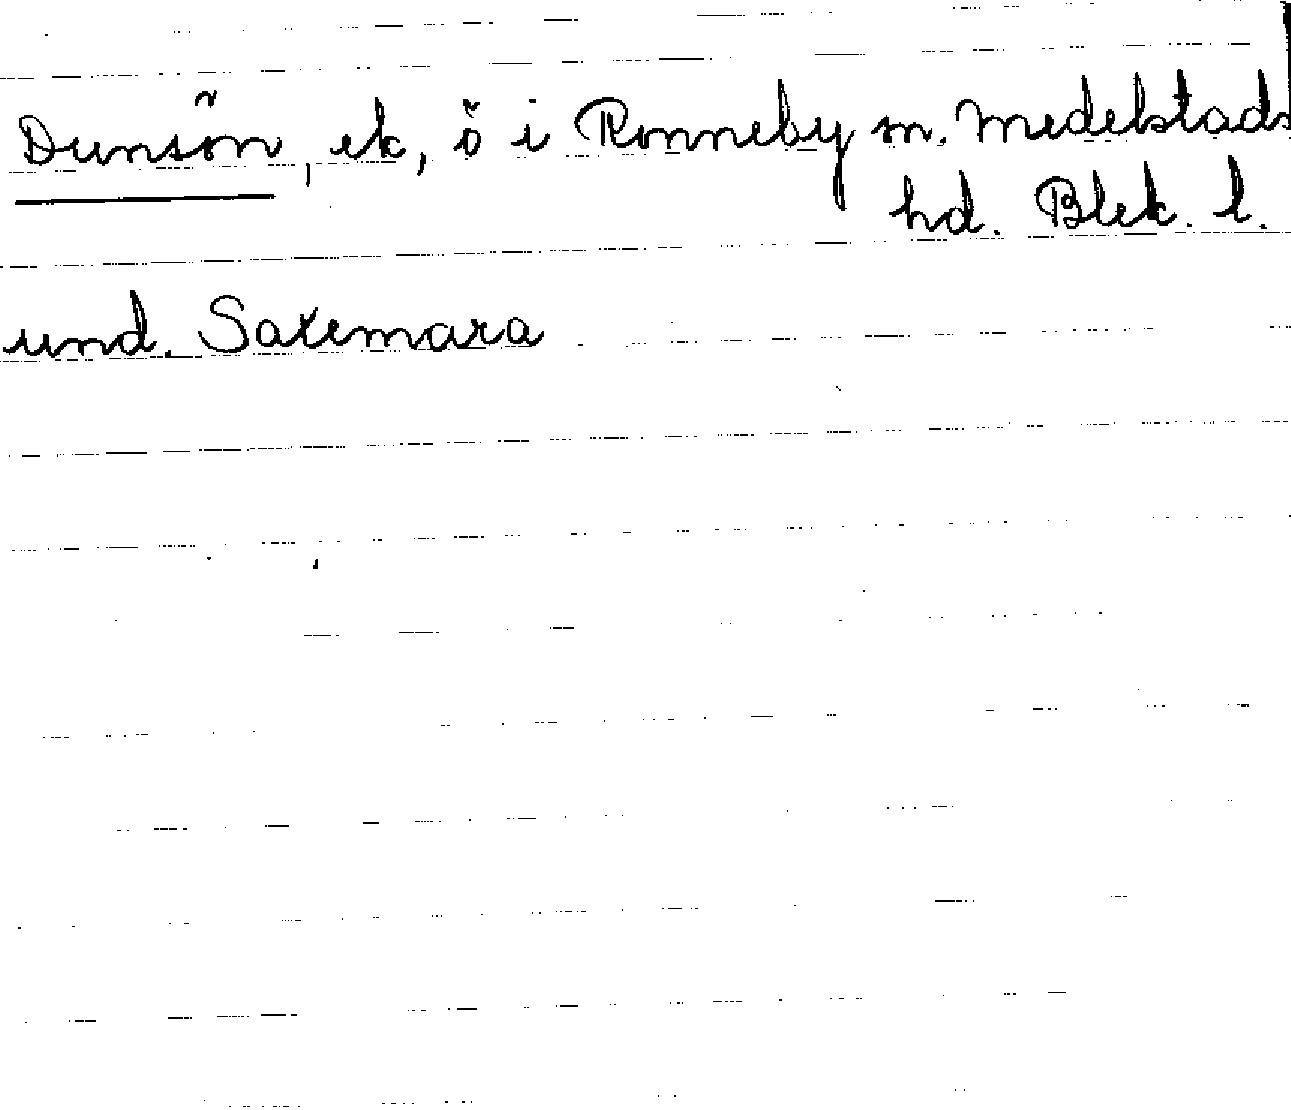 Dunsön, ek, ö i Ronneby sn. Medelstads
hd. Blek. l.
und. Saxemara